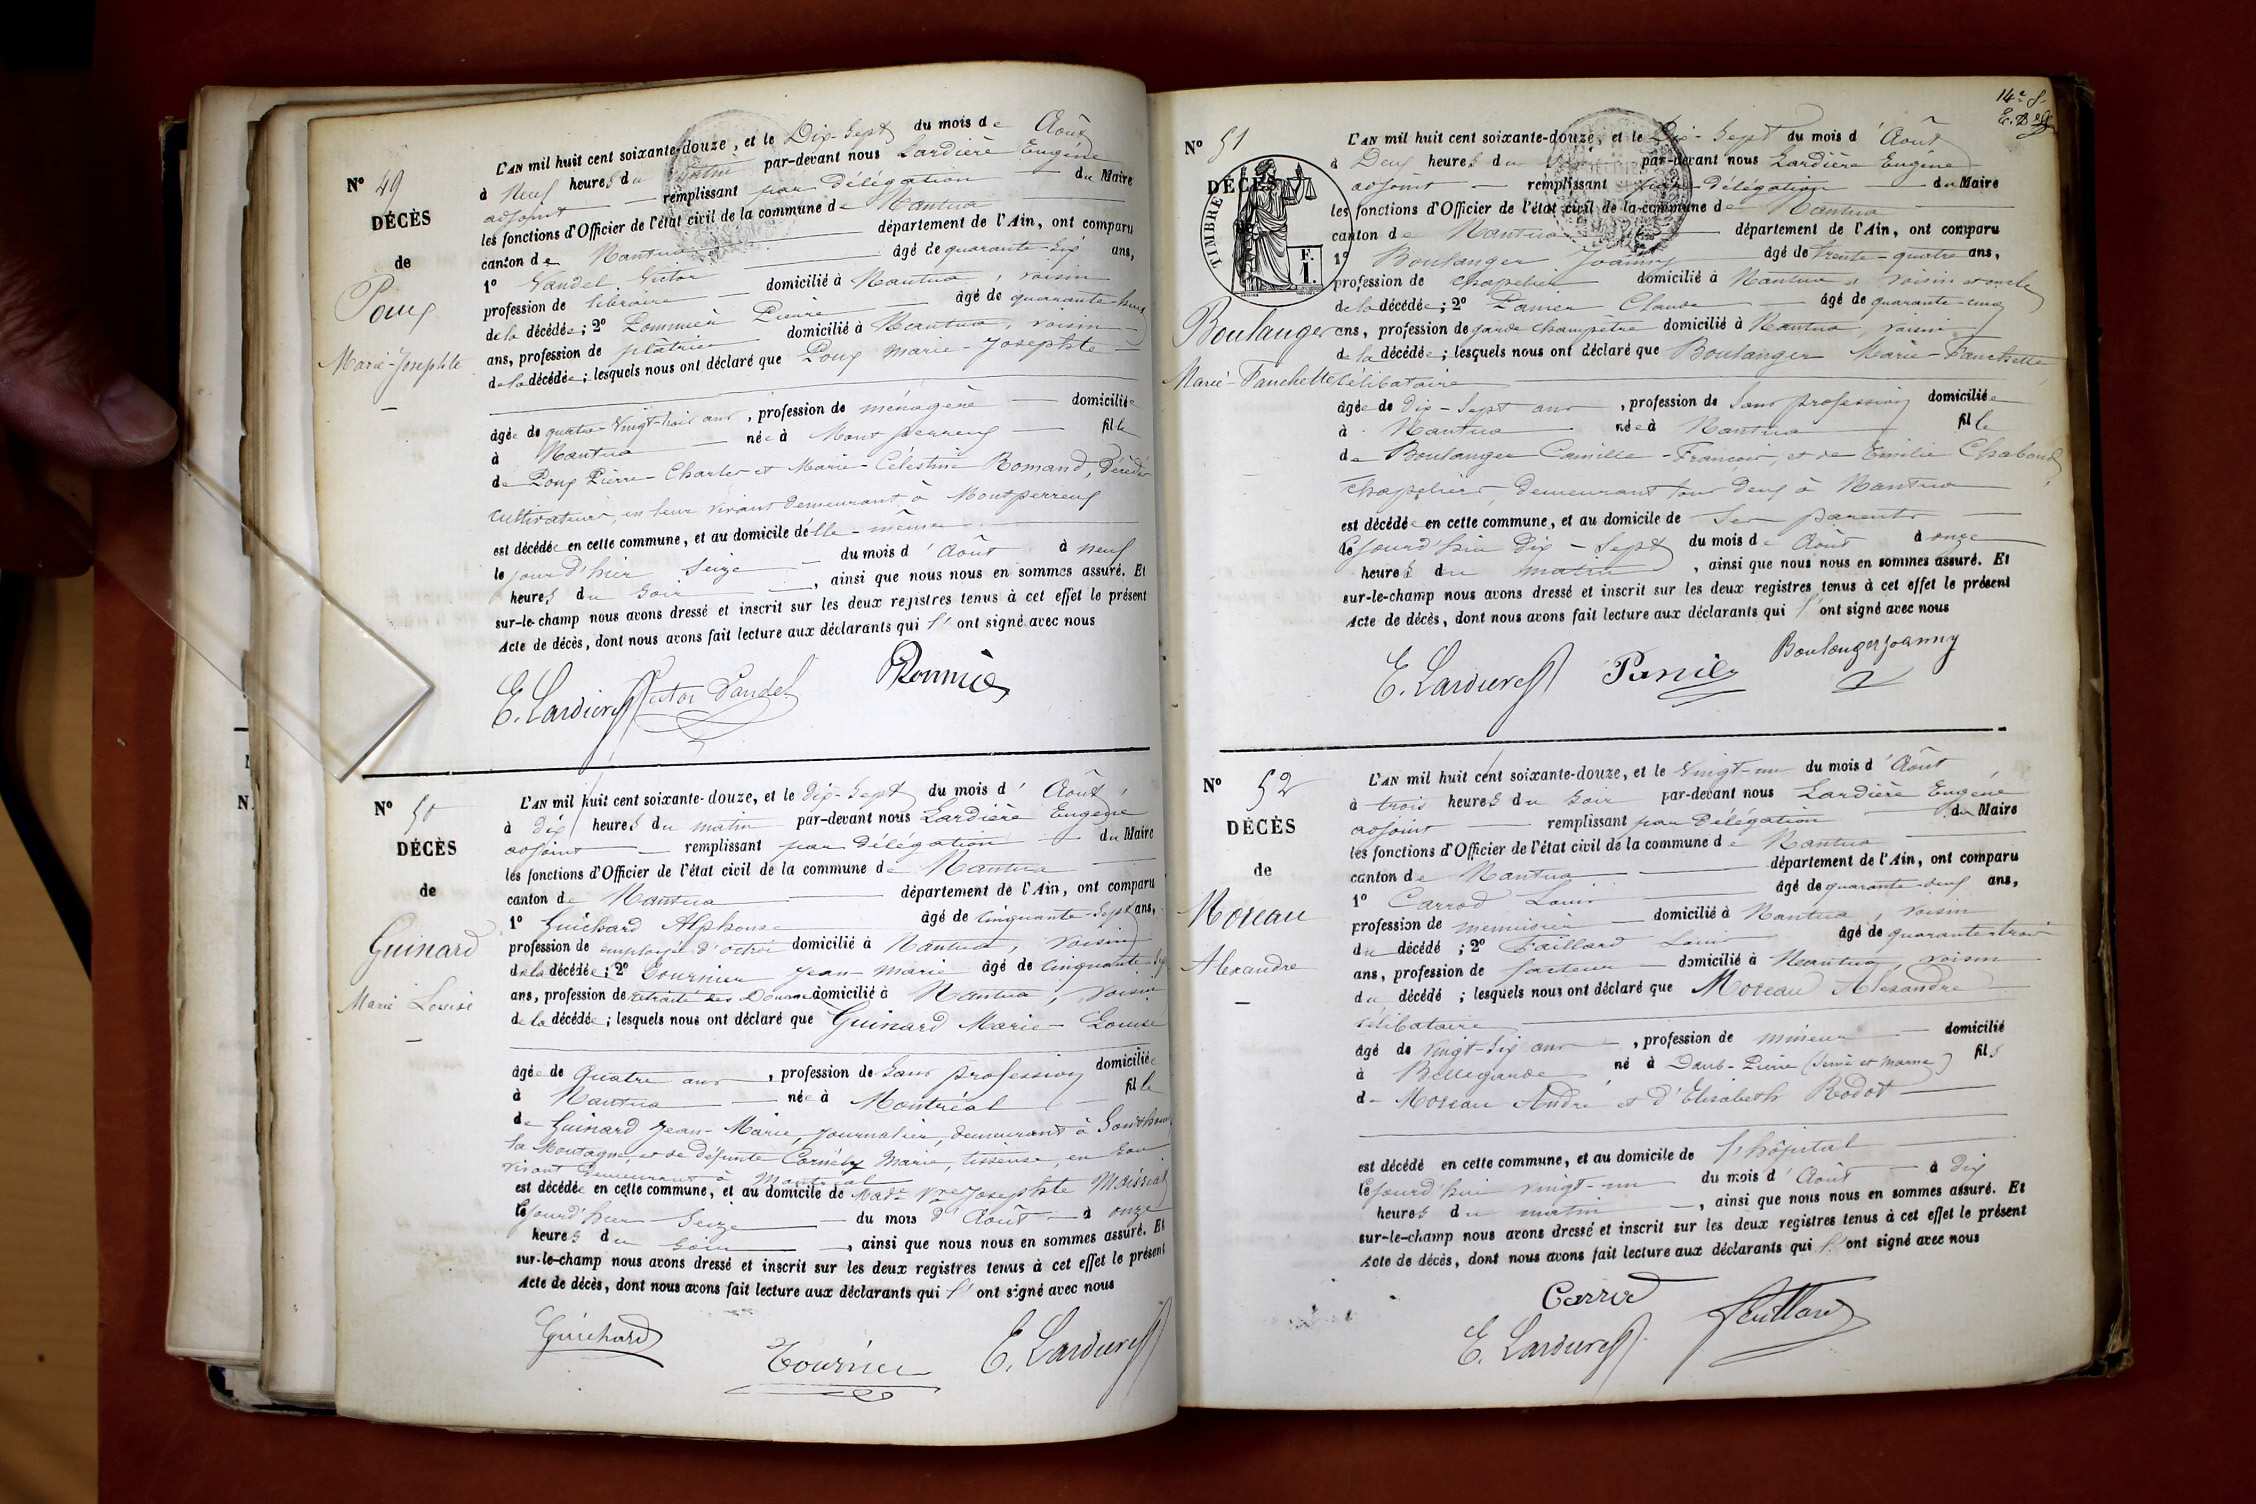 N° 49
DÉCÈS
de
Poux
Marie-Josephte
L'AN mil huit cent soixante-douze, et le Dix-Sept du mois de Août
à Neuf heures du matin par-devant nous Lardière Eugène
adjoint remplissant par délégation du Maire
les fonctions d'Officier de l'état civil de la commune de Nantua
canton de Nantua département de l'Ain, ont comparu
1° Vandel Victor âgé de quarante-six ans,
profession de libraire domicilié à Nantua, voisin
de la décédée; 2° Pommier Pierre âgé de quarante-huit
ans, profession de plâtrier domicilié à Nantua, voisin
de la décédée; lesquels nous ont déclaré que Poux Marie-Josephte
âgée de quatre-vingt-trois ans, profession de ménagère domiciliée
à Nantua née à Montperreux fille
de Poux Pierre-Charles et Marie-Célestine Romand, décédés
cultivateurs, en leur vivant demeurant à Montperreux
est décédée en cette commune, et au domicile d'elle-même
le jour d'hier Seize du mois d'Août à neuf
heures du soir, ainsi que nous nous en sommes assuré. Et
sur-le-champ nous avons dressé et inscrit sur les deux registres tenus à cet effet le présent
Acte de décès, dont nous avons fait lecture aux déclarants qui l'ont signé avec nous
E. Lardière Victor Vandel Pommier
N° 50
DÉCÈS
de
Guinard
Marie Louise
L'AN mil huit cent soixante-douze, et le dix-sept du mois d'Août
à dix heures du matin par-devant nous Lardière Eugène
adjoint remplissant par délégation du Maire
les fonctions d'Officier de l'état civil de la commune de Nantua
canton de Nantua département de l'Ain, ont comparu
1° Guichard Alphonse âgé de cinquante-sept ans,
profession de employé d'octroi domicilié à Nantua, voisin
de la décédée; 2° Tournier Jean Marie âgé de cinquante-six
ans, profession de retraité des Douanes domicilié à Nantua, voisin
de la décédée; lesquels nous ont déclaré que Guinard Marie-Louise
âgée de quatre ans, profession de sans profession domiciliée
à Nantua née à Montréal fille
de Guinard Jean-Marie, journalier, demeurant à
la Montagne, et de défunte Cornély Marie, tisseuse, en son
vivant demeurant à Montréal
est décédée en cette commune, et au domicile de Made Vve Josephte Moissiat
le jourd'hier Seize du mois d'Août à onze
heures du soir, ainsi que nous nous en sommes assuré. Et
sur-le-champ nous avons dressé et inscrit sur les deux registres tenus à cet effet le présent
Acte de décès, dont nous avons fait lecture aux déclarants qui l'ont signé avec nous
Guichard Tournier E. Lardière
14e f.
N° 51
DÉCÈS
TIMBRE
F.
1.
Boulanger
Marie-Fanchette
L'AN mil huit cent soixante-douze, et le Dix-Sept du mois d'Août
à Deux heures du soir par-devant nous Lardière Eugène
adjoint remplissant par délégation du Maire
les fonctions d'Officier de l'état civil de la commune de Nantua
canton de Nantua département de l'Ain, ont comparu
1° Boulanger Joanny âgé de trente-quatre ans,
profession de chapelier domicilié à Nantua, voisin et oncle
de la décédée; 2° Panier Claude âgé de quarante-cinq
ans, profession de garde champêtre domicilié à Nantua, voisin
de la décédée; lesquels nous ont déclaré que Boulanger Marie-Fanchette
célibataire
âgée de dix-sept ans, profession de sans profession domiciliée
à Nantua née à Nantua fille
de Boulanger Camille-François, et de Emilie Chaboud
chapeliers, demeurant tous deux à Nantua
est décédée en cette commune, et au domicile de ses parents
le jourd'hui dix-sept du mois de Août à onze
heures du matin, ainsi que nous nous en sommes assuré. Et
sur-le-champ nous avons dressé et inscrit sur les deux registres tenus à cet effet le présent
Acte de décès, dont nous avons fait lecture aux déclarants qui l'ont signé avec nous
E. Lardière Panier Boulanger Joanny
N° 52
DÉCÈS
de
Moreau
Alexandre
L'AN mil huit cent soixante-douze, et le Vingt-un du mois d'Août
à trois heures du soir par-devant nous Lardière Eugène
adjoint remplissant par délégation du Maire
les fonctions d'Officier de l'état civil de la commune de Nantua
canton de Nantua département de l'Ain, ont comparu
1° Carrod Louis âgé de quarante-neuf ans,
profession de menuisier domicilié à Nantua, voisin
du décédé; 2° Faillard Louis âgé de quarante-trois
ans, profession de facteur domicilié à Nantua, voisin
du décédé; lesquels nous ont déclaré que Moreau Alexandre
célibataire
âgé de vingt-six ans, profession de mineur domicilié
à Bellegarde né à (Seine et Marne) fils
de Moreau André et d'Elisabeth Rodot
est décédé en cette commune, et au domicile de l'hôpital
le jourd'hui vingt-un du mois d'Août à dix
heures du matin, ainsi que nous nous en sommes assuré. Et
sur-le-champ nous avons dressé et inscrit sur les deux registres tenus à cet effet le présent
Acte de décès, dont nous avons fait lecture aux déclarants qui l'ont signé avec nous
Carrod
E. Lardière